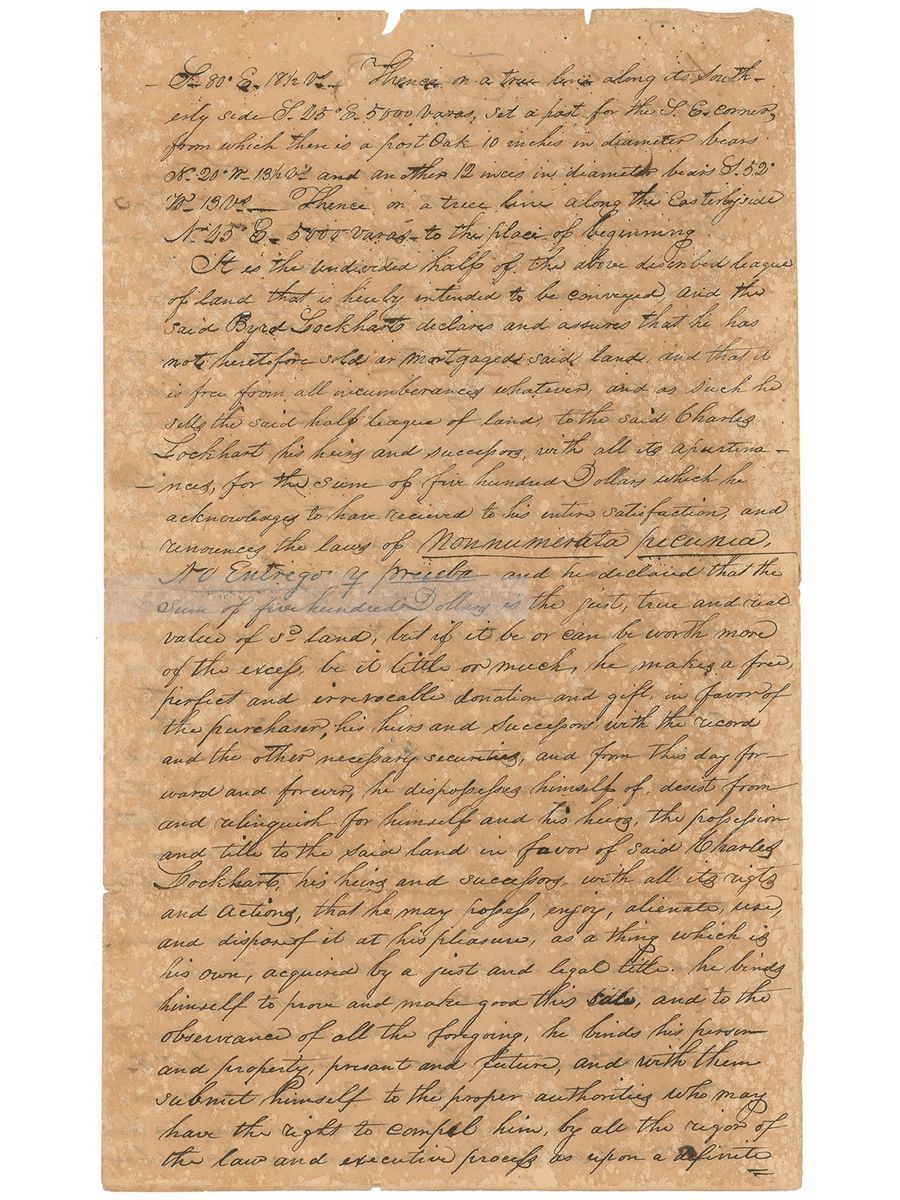 - S- 80° E- 18½ Vs- Thence on a true line along its South-
erly side S. 45° E- 5000 varas, set a post for the S. E. corner,
from which there is a post Oak 10 inches in diameter bears
N- 20° W- 13½ Vs and another 12 inces in diameter bears S. 52°
W- 13 Vs- Thence on a true line along the Easterly side
N- 45° E- 5000 varas- to the place of beginning
It is the undivided half of the above discribed league
of land that is hereby intended to be conveyed and the
said Byrd Lockhart declares and assures that he has
not heretofore sold or mortgaged said land, and that it
is free from all incumberances whatever, and as such he
sells the said half league of land, to the said Charles
Lockhart his heirs and successors, with all its apurtina-
-nces, for the sum of five hundred Dollars which he
acknowledges to have recieved to his entire satisfaction, and
renounces the laws of Nonnumerata pecunia,
No Entrego y prueba and he declared that the
sum of five hundred Dollars is the just, true and real
value of sd land, but if it be or can be worth more
of the excess, be it little or much, he makes a free,
perfect and irrevocable donation and gift, in favor of
the purchaser, his heirs and Successors, with the record
and the other necessary securities, and from this day for-
ward and forever, he dispossesses himself of, desist from
and relinquish for himself and his heirs, the possession
and title to the said land in favor of said Charles
Lockhart, his heirs and successors, with all its rigts
and actions, that he may possess, enjoy, alienate, use,
and dispose of it at his pleasure, as a thing which is
his own, acquired by a just and legal title. he binds
himself to prove and make good this sale, and to the
observance of all the foregoing, he binds his person
and property, present and future, and with them
submit himself to the proper authorities who may
have the right to compel him, by all the rigor of
the law and executive process as upon a definite